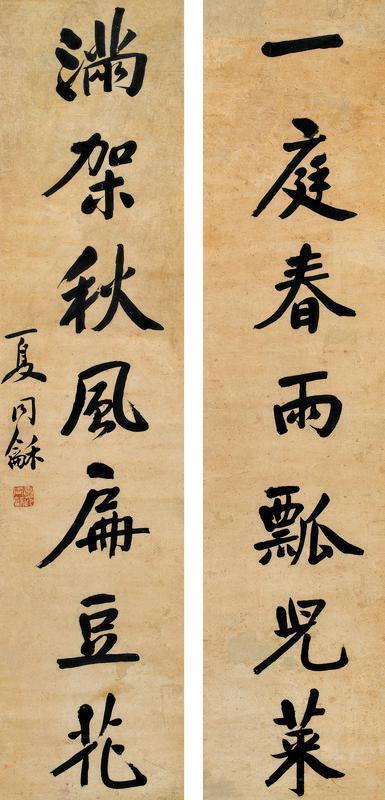 一庭春雨瓢兒菜
滿架秋風扁豆花
夏同龢